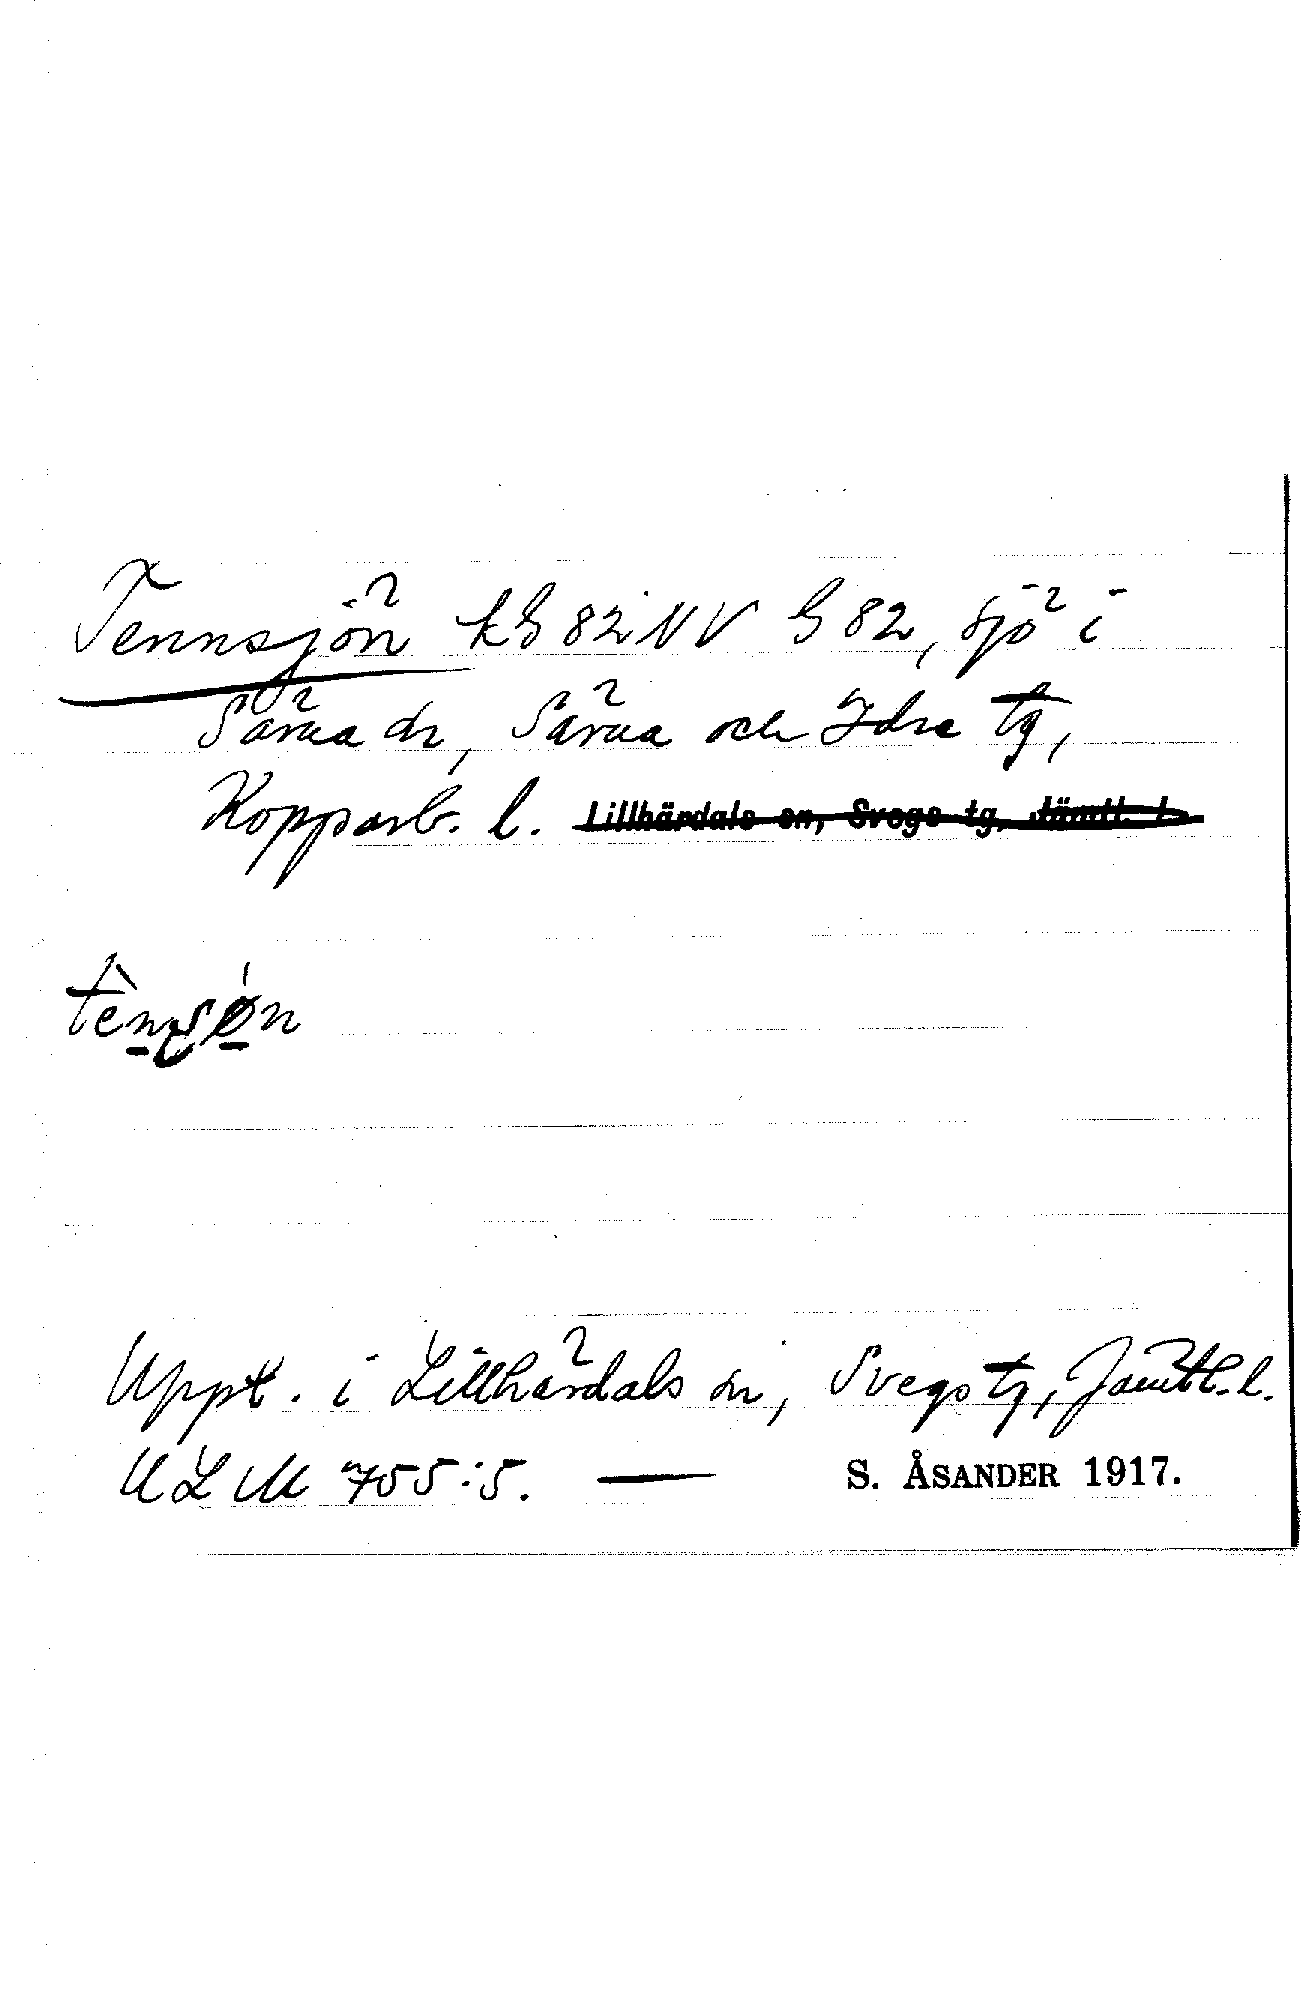 Tennsjön k G 82 NV G 82, sjö i
Särna sn, Särna och Idre tg,
Kopparb. l. Lillhärdals sn, Svegs tg, Jämtl. l.
tènsǿn
Uppt. i Lillhärdals sn, Svegs tg, Jämtl. l.
ULM 755:5. — S. ÅSANDER 1917.